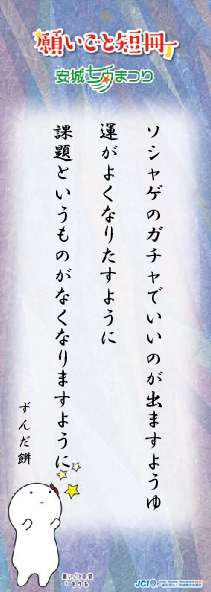 願いごと短冊
安城七夕まつり
ソシャゲのガチャでいいのが出ますようゆ
運がよくなりたすように
課題というものがなくなりますように
ずんだ餅
JCI